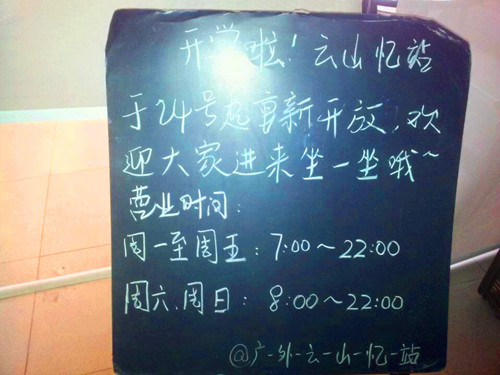 开学啦!云山忆站
于24号起重新开放,欢
迎大家进来坐一坐哦~
营业时间:
周一至周五:7:00~22:00
周六、周日:8:00~22:00
@广-外-云-山-忆-站